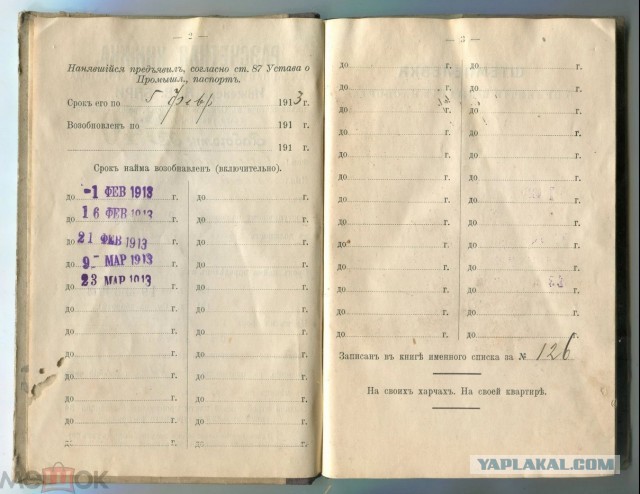 — 2 —
Нанявшійся предъявилъ, согласно ст. 87 Устава о
Промышл., паспортъ.
Срокъ его по 5 февр 1913 г.
Возобновленъ по 191 г.
191 г.
Срокъ найма возобновленъ (включительно).
до -1 ФЕВ 1913 г. до г.
до 16 ФЕВ 1913 г. до г.
до 21 ФЕВ 1913 г. до г.
до 9- МАР 1913 г. до г.
до 23 МАР 1913 г. до г.
до г. до г.
до г. до г.
до г. до г.
до г. до г.
до г. до г.
до г. до г.
до г. до г.
— 3 —
до г. до г.
до г. до г.
до г. до г.
до г. до г.
до г. до г.
до г. до г.
до г. до г.
до г. до г.
до г. до г.
до г. до г.
до г. до г.
до г. до г.
до г. до г.
Записанъ въ книгѣ именного списка за № 126
На своихъ харчахъ. На своей квартирѣ.
Мешок
YAPLAKAL.COM